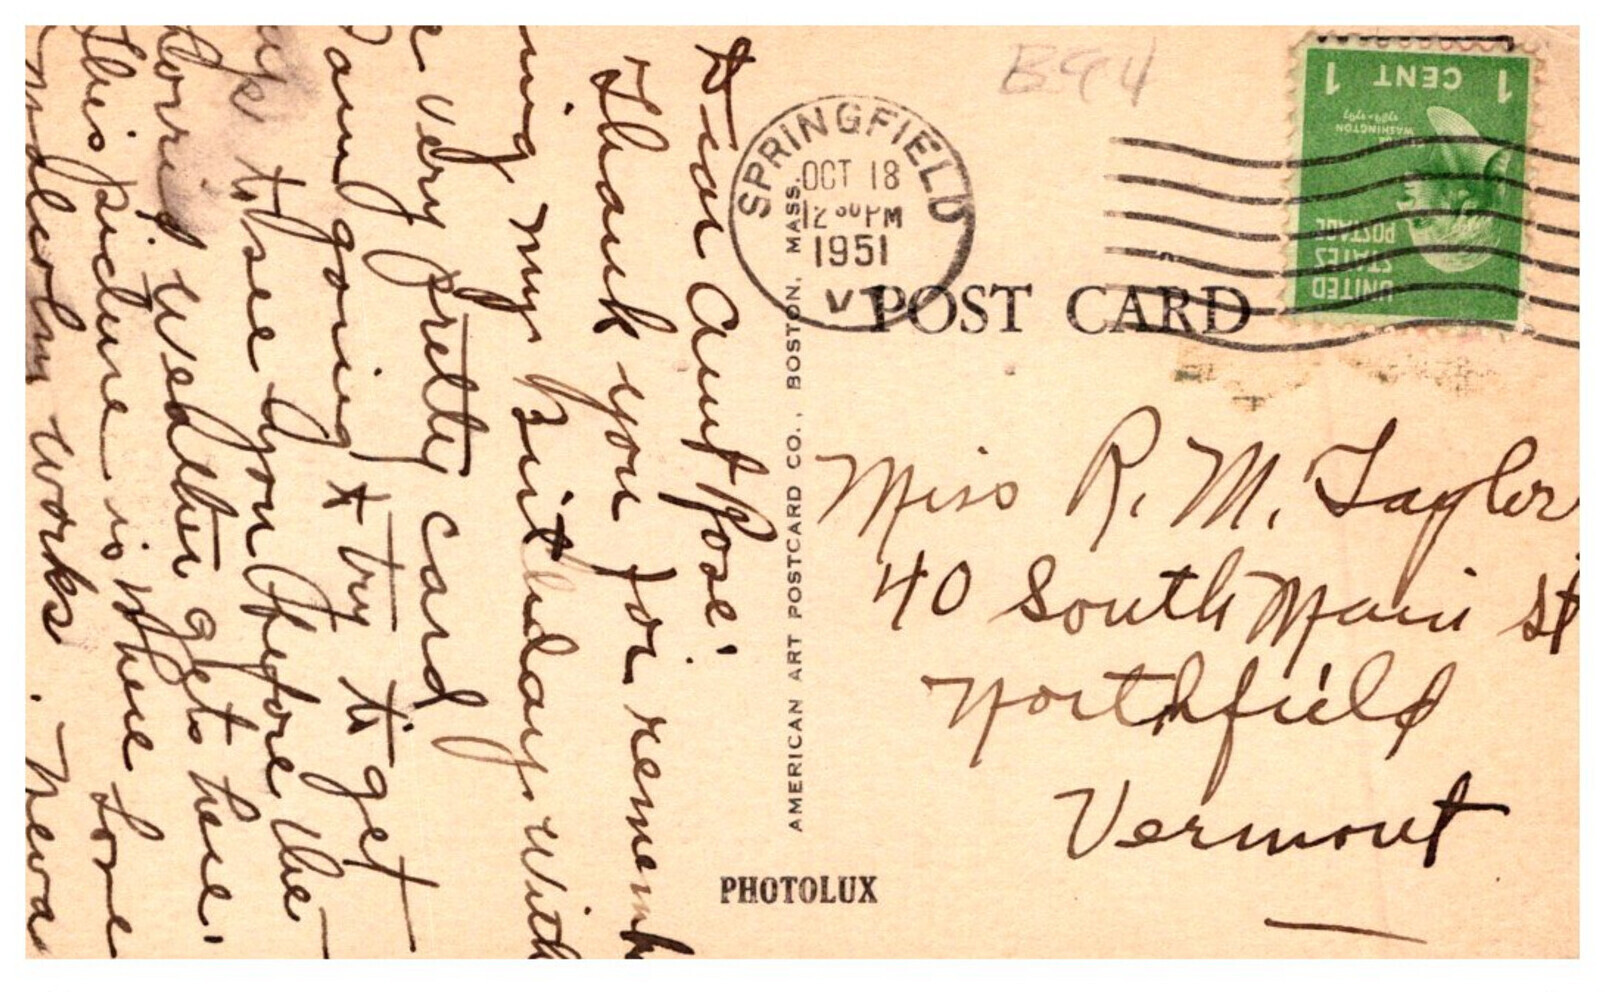 Dear Aunt Rose:
Thank you for rememb
ing my Birthday with
a very pretty card
I am going to try to get
up to see you before the
horrid weather gets here.
This picture is where Lore
Malcolm works. Neva
B94
SPRINGFIELD
OCT 18
12 30 PM
1951
VT
POST CARD
1 CENT 1
WASHINGTON
1789-1797
UNITED
STATES
POSTAGE
AMERICAN ART POSTCARD CO., BOSTON, MASS.
Miss R. M. Taylor
40 South Main St
Northfield
Vermont
PHOTOLUX